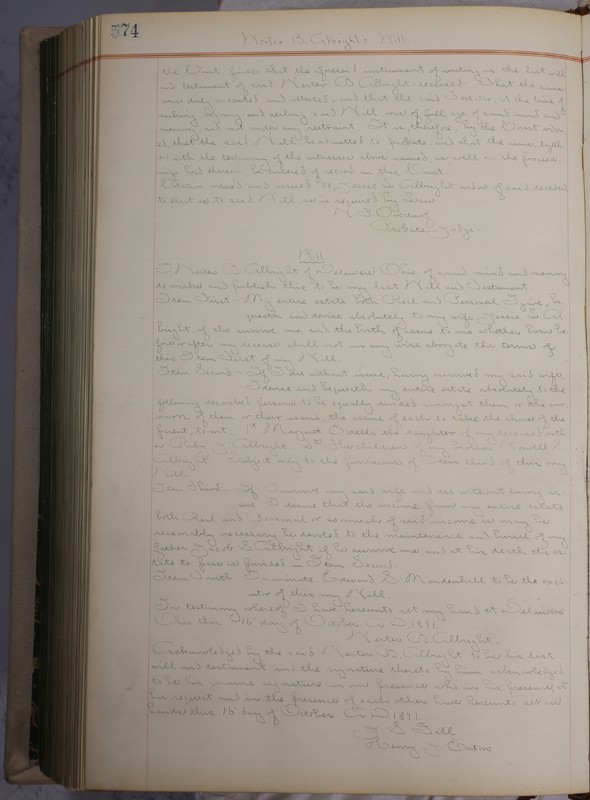 574
B. Albright's Will.
The Court finds that the aforesaid instrument of writing is the last will
and testament of said B. Albright deceased. That the same
was duly executed and attested, and that the said Testator, at the time of
making, signing and sealing said Will, was of full age, of sound mind and
memory, and not under any restraint. It is, therefore, by the Court order
ed, that the said Will be admitted to probate, and that the same, togeth
er with the testimony of the witnesses above named, as well as the proceed
ings had thereon, be entered of record in this Court.
Citation ordered and issued to Jessie L. Albright widow of said deceased
to elect as to said Will, as is required by Law.
Probate Judge.
Will
I B. Albright of Delaware Ohio of sound mind and memory
do make and publish this to be my last Will and Testament
Item First - My entire estate both Real and Personal I give, be
queath and devise absolutely to my wife Jessie L. Al
bright, if she survive me, and the birth of issue to me whether born be
fore or after my decease shall not in any wise abrogate the terms of
this Item First of my Will.
Item Second - If I die without issue, having survived my said wife,
I devise and bequeath my entire estate absolutely to the
following recorded persons to be equally divided amongst them or the sur
vivors of them or their issue, the issue of each to take the share of the
parent, to wit, 1st Margaret daughter of my deceased broth
er Albright 2nd The children of my brother
Albright Subject only to the provisions of Item third of this my
Will
Item Third - If I survive my said wife and die without living is-
sue I desire that the income from my entire estate
both Real and Personal or so much of said income as may be
reasonably necessary be devoted to the maintenance and burial of my
father Jacob S. Albright if he survive me, and at his death the es-
tate to pass as provided in Item Second.
Item Fourth I nominate Edward S. Mendenhall to be the exec-
utor of this my Will.
In testimony whereof I have hereunto set my hand at Delaware
Ohio this 16" day of October A. D. 1891.
B. Albright.
Acknowledged by the said B. Albright to be his last
will and testament and the signature thereto by him acknowledged
to be his genuine signature in our presence who in his presence, at
his request and in the presence of each other have hereunto set our
hands this 16" day of October A. D. 1891.
Henry J.